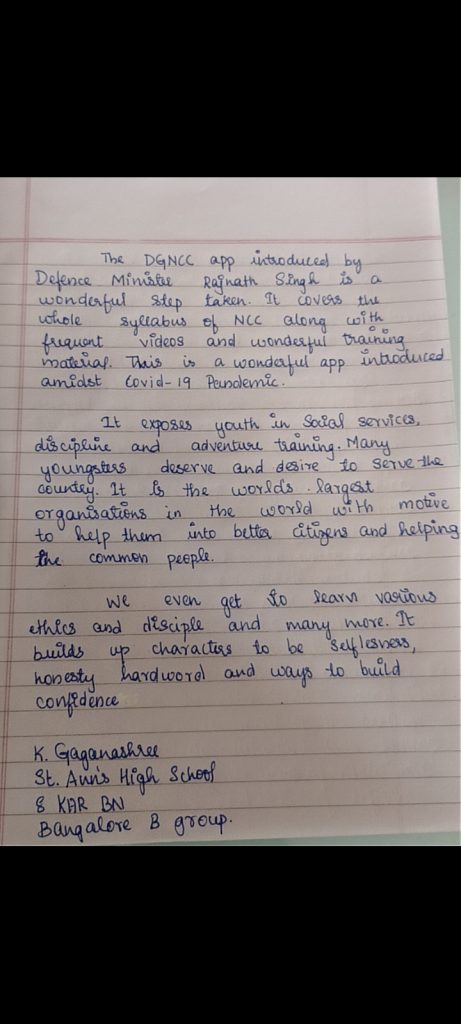 The DGNCC app introduced by
Defence Minister Rajnath Singh is a
wonderful step taken. It covers the
whole syllabus of NCC along with
frequent videos and wonderful training
material. This is a wonderful app introduced
amidst Covid-19 Pandemic.
It exposes youth in Social services,
discipline and adventure training. Many
youngsters deserve and desire to serve the
country. It is the worlds largest
organisations in the world with motive
to help them into better citizens and helping
the common people.
We even get to learn various
ethics and disciple and many more. It
builds up characters to be selflesness,
honesty hardword and ways to build
confidence
K. Gaganashree
St. Ann's High School
8 KAR BN
Bangalore B group.